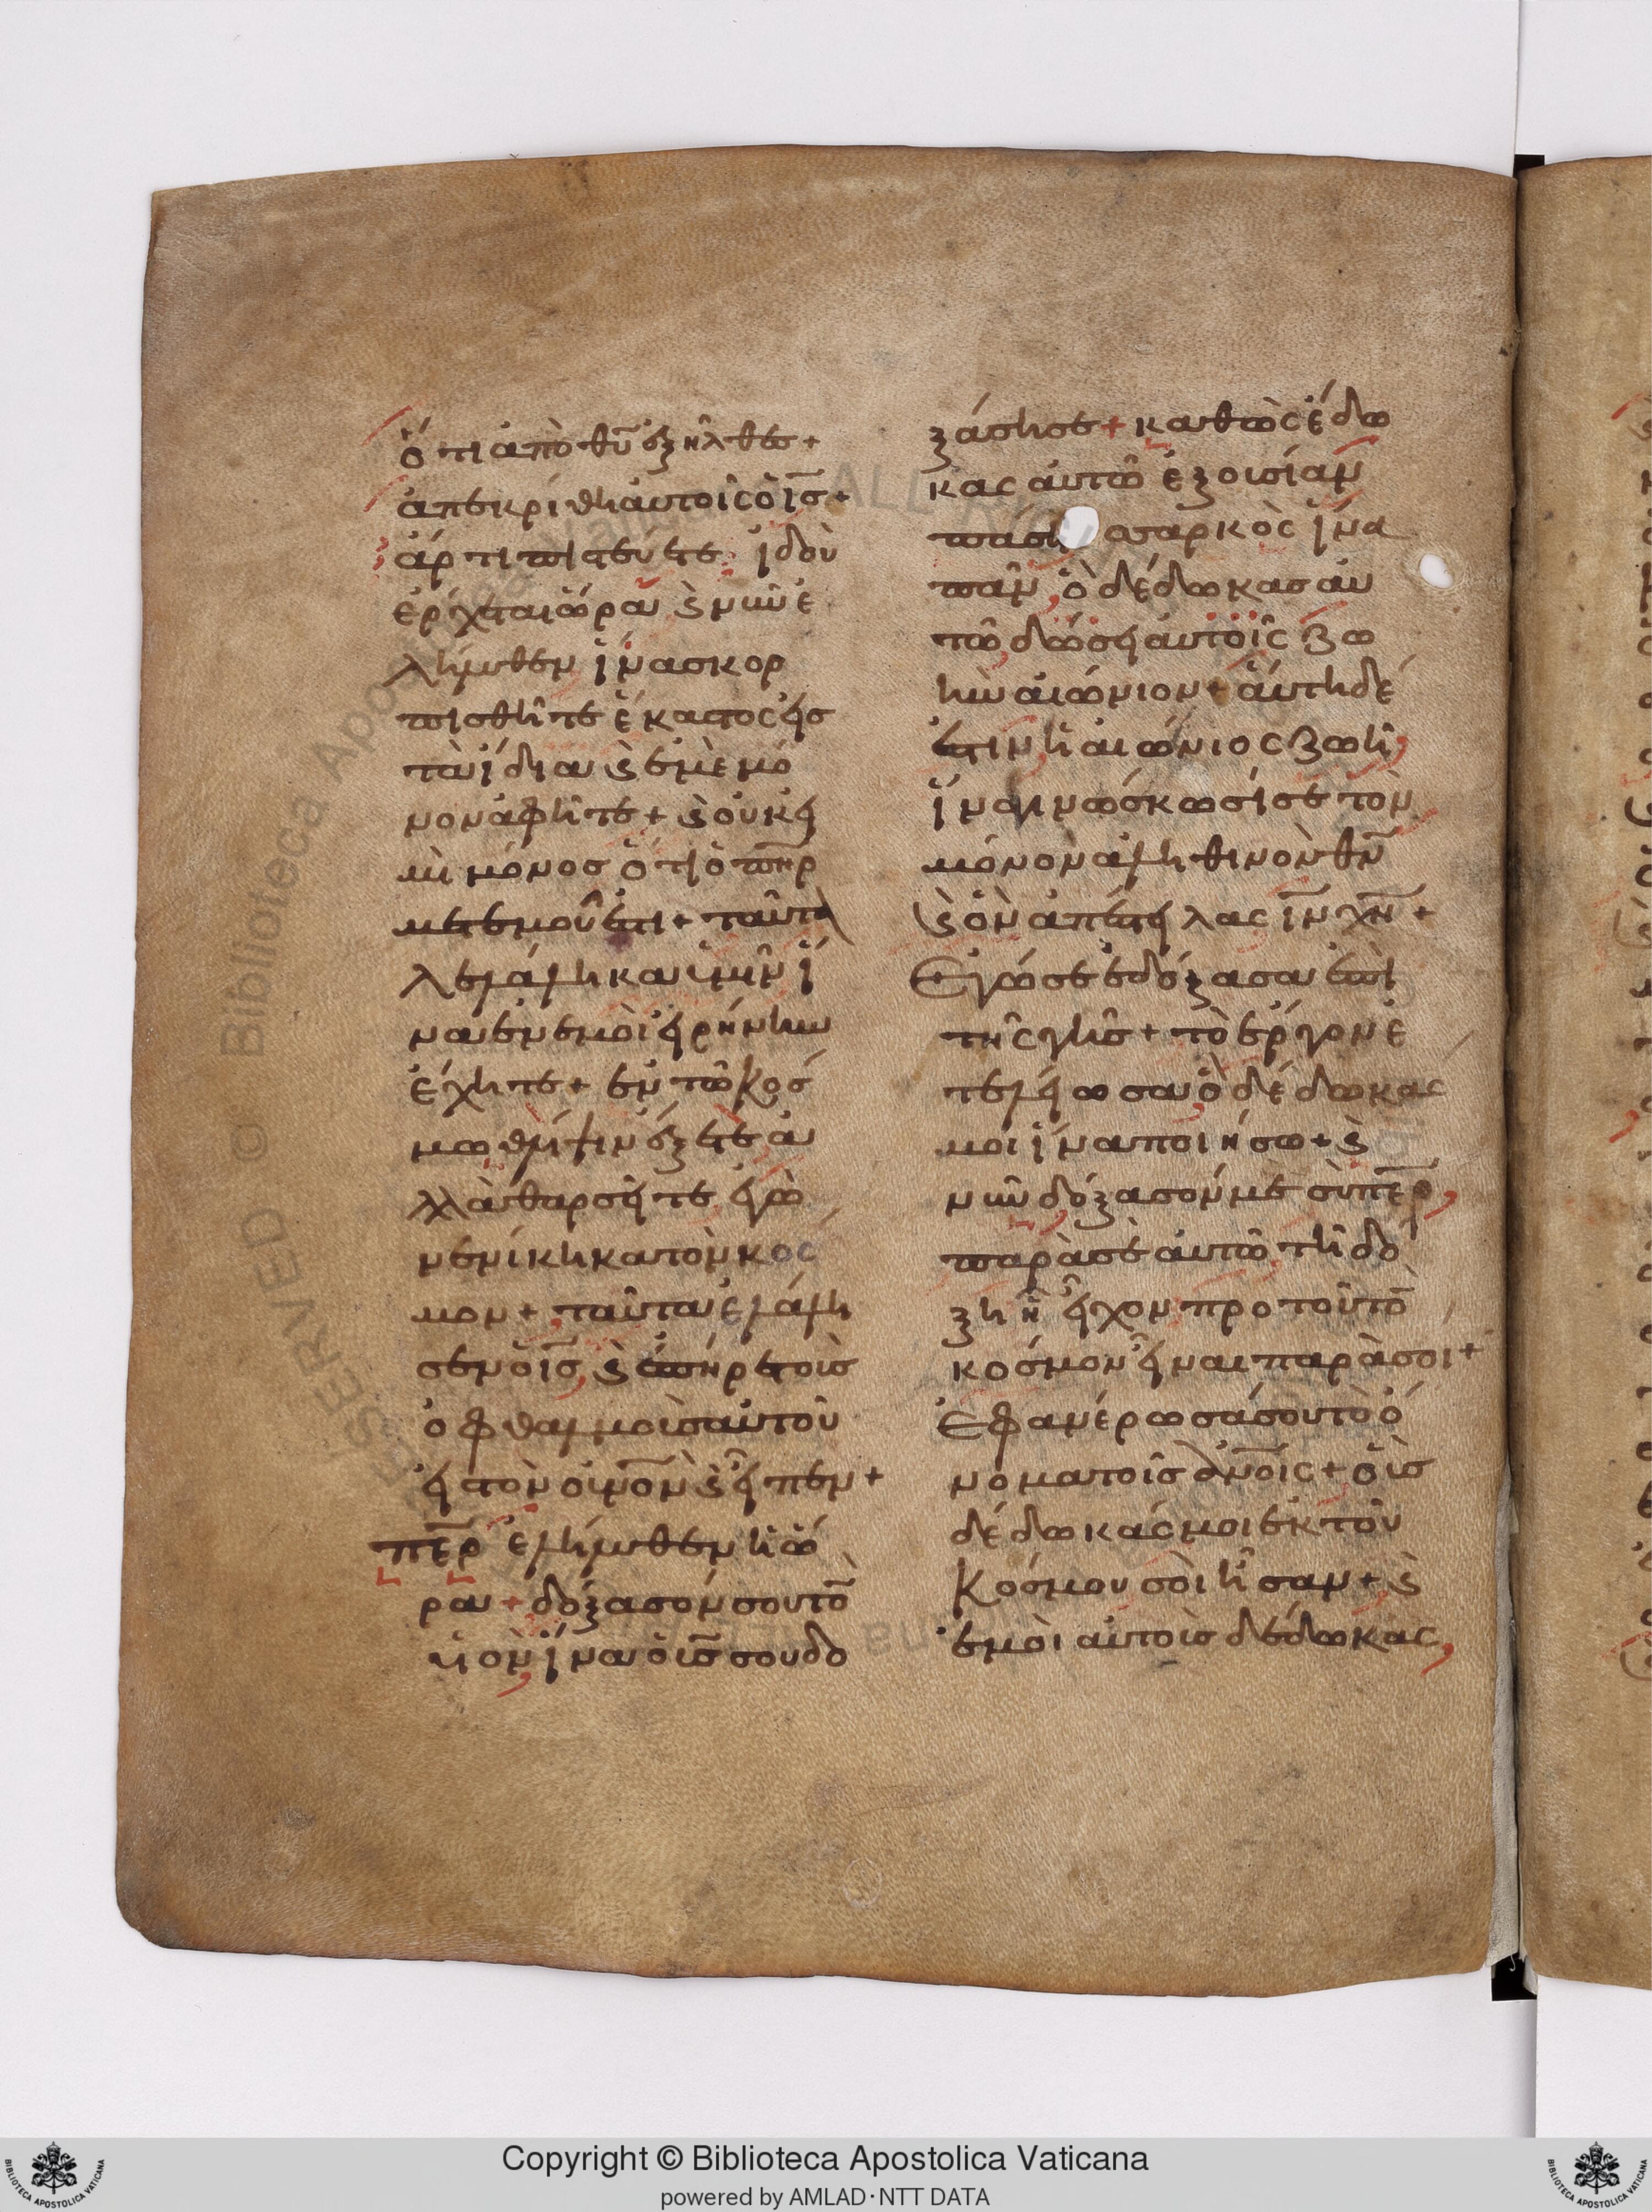 ὅτι ἀπὸ θυ̅ ἐξῆλθες +
ἀπεκρίθη αὐτοῖς ὁ ις̅ +
ἄρτι πιστεύετε· ἰδοὺ
ἔρχεται ὥρα ϗ νῦν ἐ
λήλυθεν ἵνα σκορ
πισθῆτε ἕκαστος εἰς
τὰ ἴδια ϗ ἐμὲ μό
νον ἀφῆτε + ϗ οὐκ εἰ
μὶ μόνος ὅτι ὁ πηρ̅
μετ ἐμοῦ ἐστι + ταῦτα
λελάληκα ὑμῖν ἵ
να ἐν ἐμοὶ εἰρήνην
ἔχητε + ἐν τῶ κόσ
μω θλίψιν ἕξετε ἀ
λλὰ θαρσεῖτε, ἐγὼ
νενίκηκα τὸν κόσ
μον + ταῦτα ἐλάλη
σεν ὁ ις̅, ϗ ἐπῆρε τοὺς
ὀφθαλμοὺς αὐτοῦ
εἰς τὸν οὐνον̅ ϗ εἶπεν +
περ̅ ἐλήλυθεν ἡ ὥ
ρα + δόξασόν σου τὸ
υἱὸν ἵνα ὁ υις̅ σου δο
ξάση σε + καθὼς ἔδω
κας αὐτῶ ἐξουσίαν
πάση σαρκὸς ἵνα
πᾶν, ὃ δέδωκας αὐ
τῶ, δώσει αὐτοῖς ζω
ὴν αἰώνιον + αὕτη δέ
ἐστιν ἡ αἰώνιος ζωὴ,
ἵνα γινώσκωσί σε τὸν
μόνον ἀληθινὸν θν̅
ϗ ὃν ἀπέστειλας ιν̅ χν̅ +
Ἐγώ σε ἐδόξασα ἐπὶ
τῆς γῆς + τὸ ἔργον ἐ
τελείωσα ὃ δέδωκας
μοι ἵνα ποιήσω + ϗ
νῦν δόξασόν με σὺ περ̅,
παρὰ σε αὐτῶ, τῆ δό
ξη ἧ εἶχον προ τοῦ τὸ
κόσμον εἶναι παρὰ σοι +
Ἐφανέρωσά σου τὸ ὄ
νομα τοῖς ἀνοις̅ + οὓς
δέδωκάς μοι ἐκ τοῦ
κόσμου σοὶ ἦσαν + ϗ
ἐμοὶ αὐτοὺς δέδωκας,